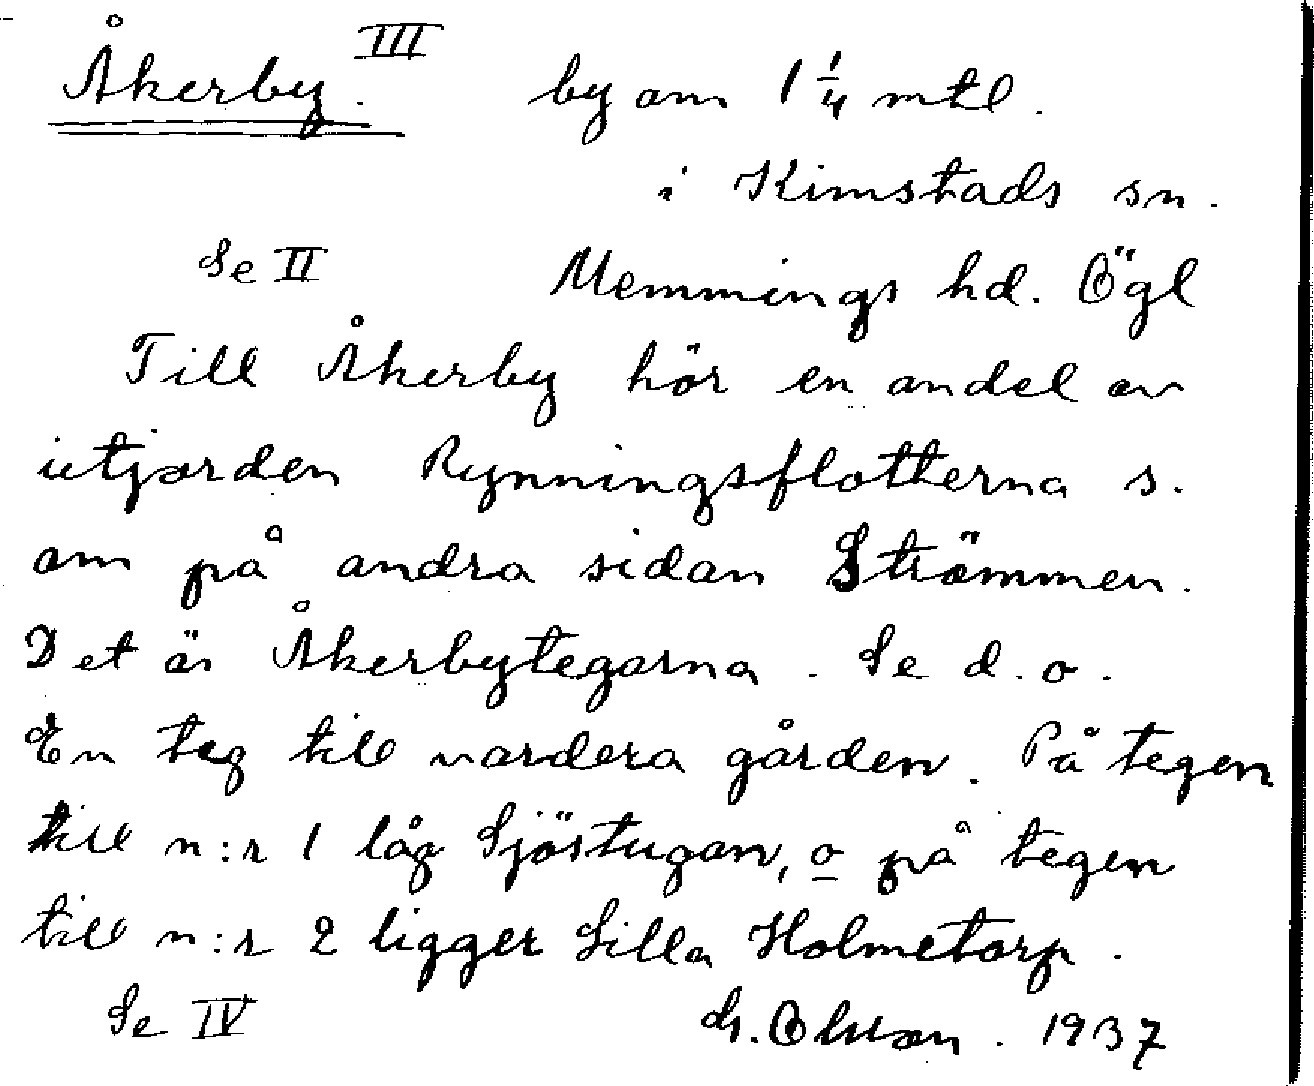 Åkerby. III by om 1 1/4 mtl.
i Kimstads sn.
Se II Memmings hd. Ögl
Till Åkerby hör en andel av
utjorden Rynningsflotterna s.
om på andra sidan Strömmen.
Det är Åkerbytegarna. Se d.o.
En teg till vardera gården. På tegen
till n:r 1 låg Sjöstugan, o på tegen
till n:r 2 ligger Lilla Holmetorp.
Se IV G. Olsson. 1937